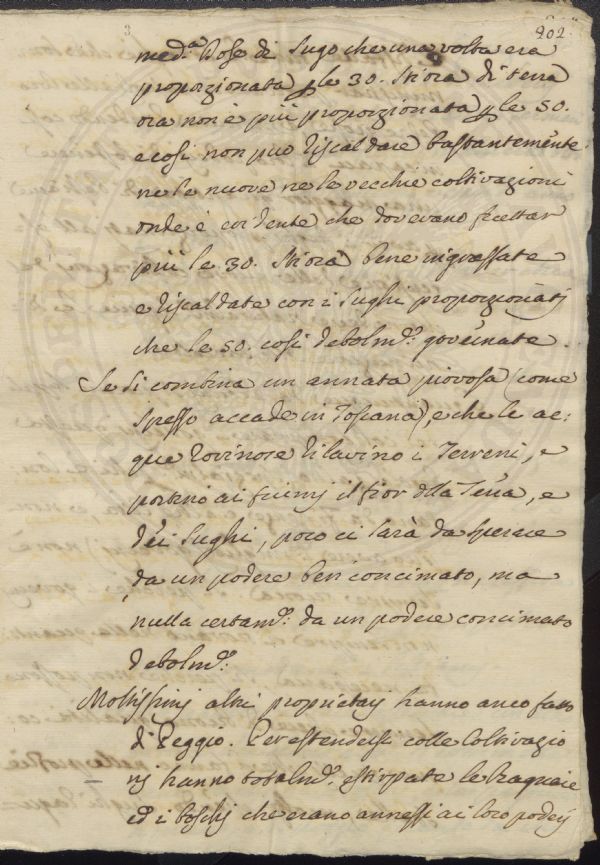 202
med.ª Dose di Sugo che una volta era
proporzionata p le 30. Stiora di terra
ora non è più proporzionata p le 50.
e così non può riscaldare bastantemente
ne le nuove ne le vecchie coltivazioni
onde è evidente che dovevano fruttar
più le 30. Stiora bene ingrassate
e riscaldate con i sughi proporzionatj
che le 50. così debolm.e governate.
Se si combina un annata piovosa (come
spesso accade in Toscana), e che le ac:
que rovinose dilavino i Terreni, e
portino ai fiumj il fior dlla Terra, e
dei sughi, poco ci sarà da sperare
da un podere ben concimato, ma
nulla certam.e da un podere concimato
debolm.e
Moltissimj altri proprietarj hanno anco fatto
di Peggio. Per estendersi colle Coltivazio
nj hanno totalm.e estirpate le
ed i boschj che erano annessi ai loro poderj